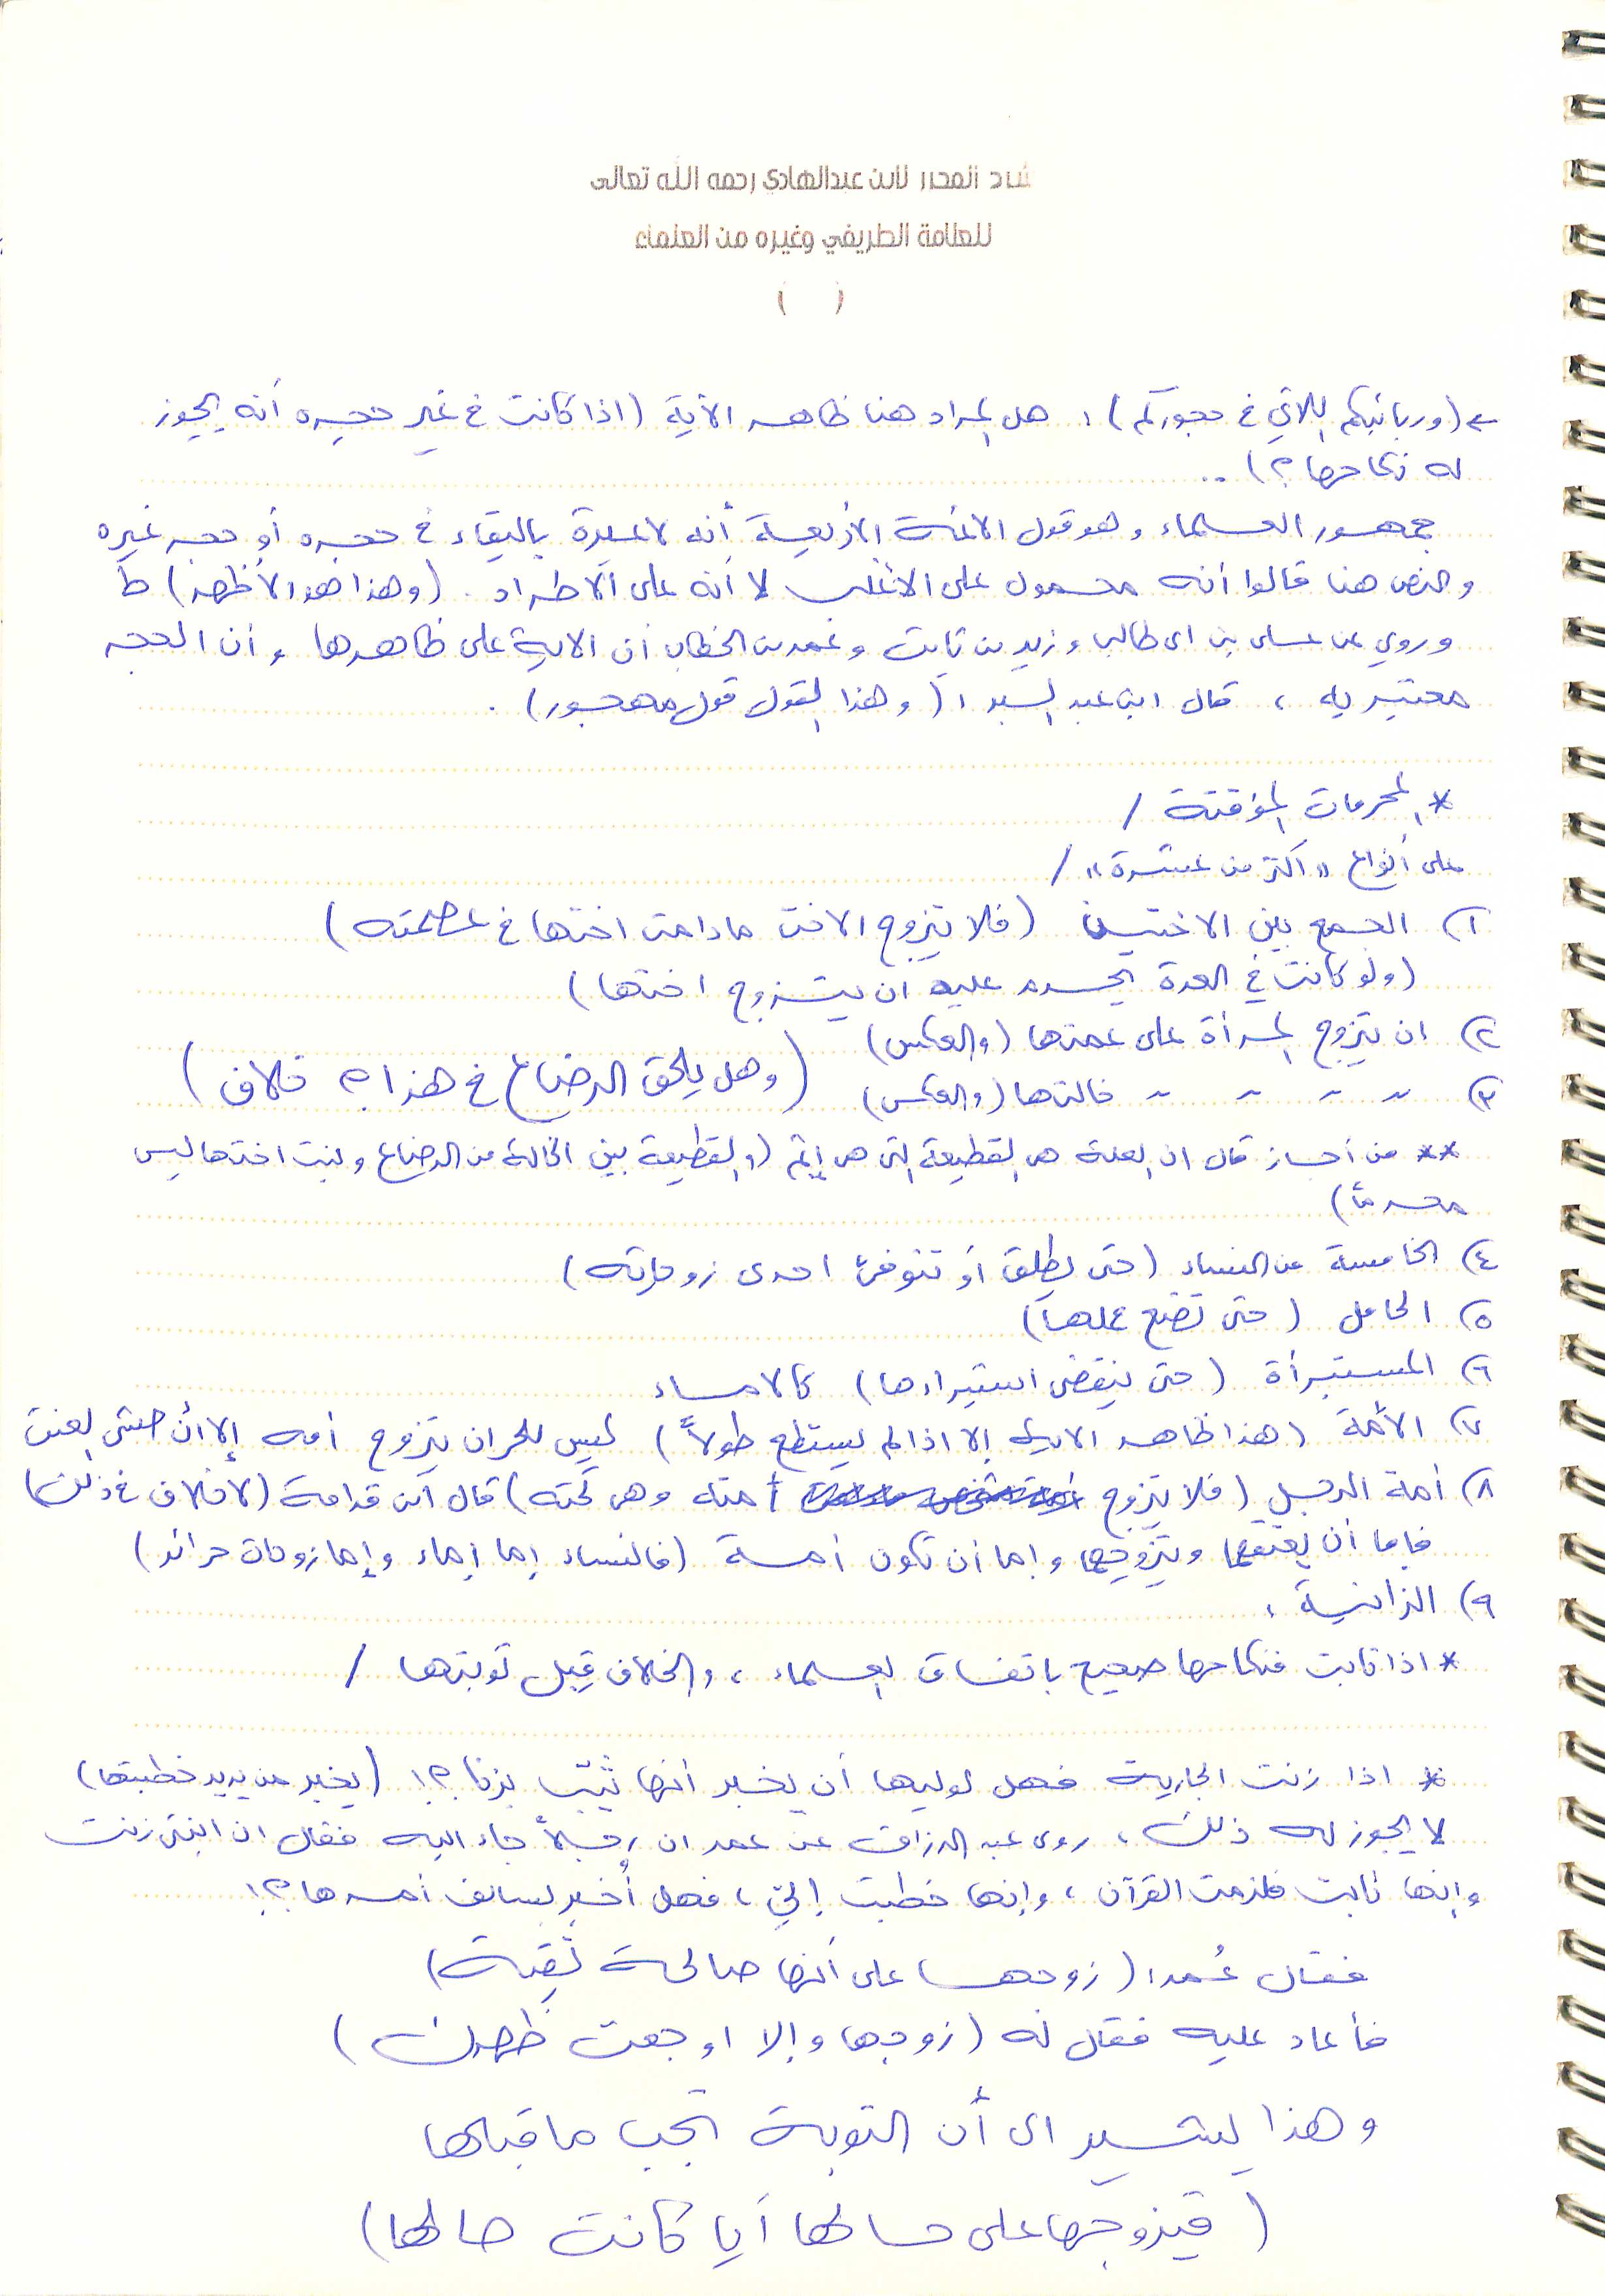 شرح المحرر لابن عبدالهادي رحمه الله تعالى
للعلامة الطريفي وغيره من العلماء
( )
(وربائبكم اللاتي في حجوركم) : هل المراد هنا ظاهر الآية (اذا كانت في غير حجره أنه يجوز
له نكاحها ؟) ..
جمهور العلماء وهو قول الائمة الأربعة أنه لا عبرة بالبقاء في حجره أو حجر غيره
والنص هنا قالوا أنه محمول على الاغلب لا أنه على الاطراد . (وهذا هو الأظهر) ط
وروي عن علي بن ابي طالب وزيد بن ثابت وعمر بن الخطاب أن الاية على ظاهرها ، وأن الحجر
معتبر به ، قال ابن عبد البر : (وهذا القول قول مهجور) .
* المحرمات المؤقتة /
على أنواع "أكثر من عشرة" /
١) الجمع بين الاختين (فلا يتزوج الاخت مادامت اختها في عصمته)
(ولو كانت في العدة يحرم عليه ان يتزوج اختها)
٢) ان يتزوج المرأة على عمتها (والعكس)
٣) " " " " خالتها (والعكس) (وهل يلحق الرضاع في هذا ؟ خلاف)
** من أجاز قال ان العلة هي القطيعة التي هي إثم (والقطيعة بين الخالة من الرضاع وبنت اختها ليس
محرماً)
٤) الخامسة من النساء (حتى يطلق أو تتوفى احدى زوجاته)
٥) الحامل (حتى تضع حملها)
٦) المستبرأة (حتى ينقضي استبراءها) كالاماء
٧) الأمة (هذا ظاهر الاية إلا اذا لم يستطع طولاً) ليس للحر ان يتزوج أمه إلا ان خشي العنت
٨) أمة الرجل (فلا يتزوج أمته وهي تحته) قال ابن قدامة (لا خلاف في ذلك)
فإما أن يعتقها ويتزوجها وإما أن تكون أمة (فالنساء إما إماء وإما زوجات حرائر)
٩) الزانية :
* اذا تابت فنكاحها صحيح باتفاق العلماء ، والخلاف قبل توبتها /
* اذا زنت الجارية فهل لوليها أن يخبر أنها ثيب بزنا ؟! (يخبر من يريد خطبتها)
لا يجوز له ذلك ، روى عبد الرزاق عن عمر ان رجلاً جاء اليه فقال ان ابنتي زنت
وإنها تابت فلزمت القرآن ، وإنها خطبت إلي ، فهل أخبر بسالف أمرها ؟!
فقال عُمر : (زوجها على أنها صالحة تقية)
فأعاد عليه فقال له (زوجها وإلا اوجعت ظهرك)
وهذا يشير الى أن التوبة تجب ما قبلها
(فيزوجها على حالها أيا كانت حالها)